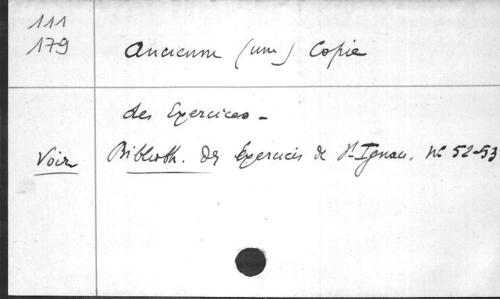 111
179
Ancienne (une) Copie
des Exercices -
Voir Biblioth. des Exercices de St Ignace. No 52-53